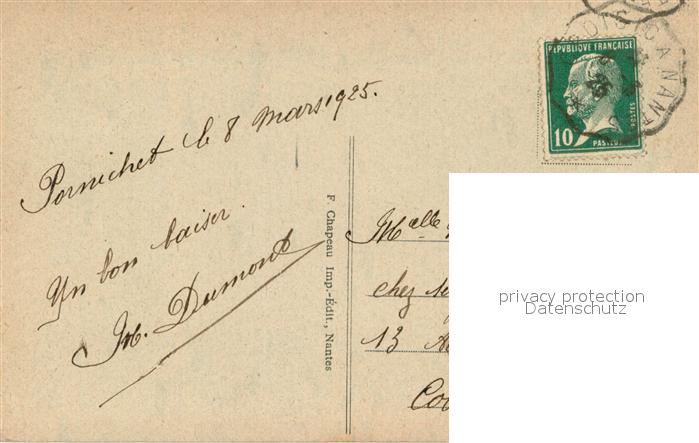 Pornichet le 8 mars 1925.
Un bon baiser.
M. Dumont
F. Chapeau Imp.-Édit., Nantes
REPVBLIQUE FRANÇAISE
POSTES
10
PASTEUR
Melle
chez
13
privacy protection
Datenschutz